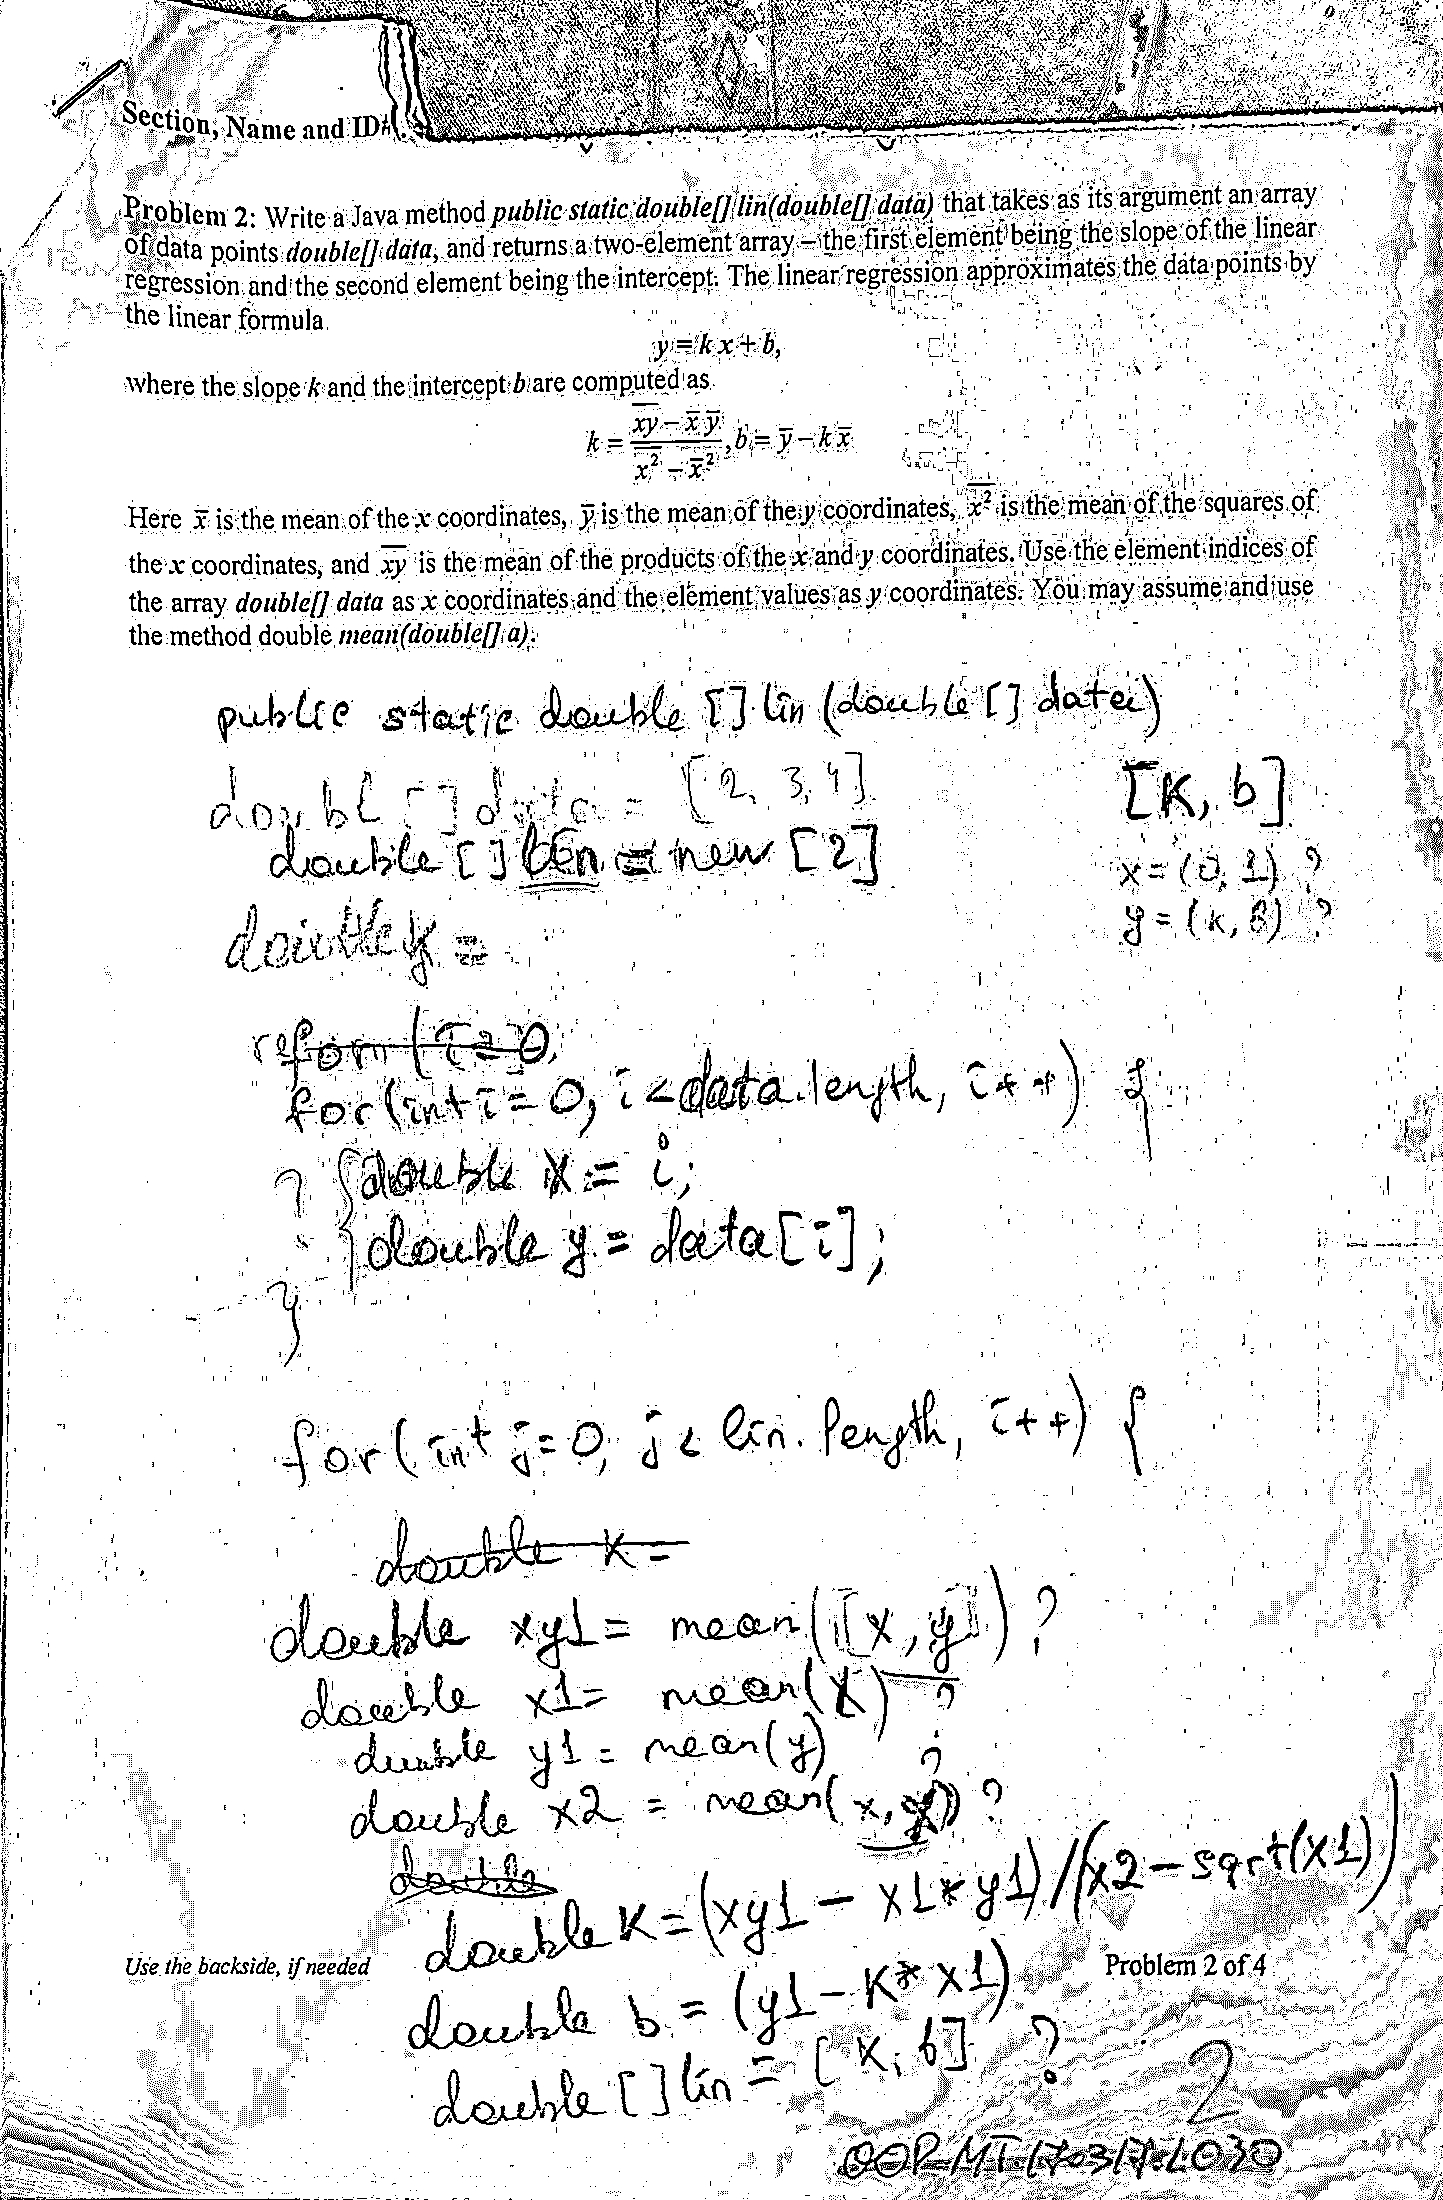 Section, Name and ID#
Problem 2: Write a Java method public static double[] lin(double[] data) that takes as its argument an array
of data points double[] data, and returns a two-element array – the first element being the slope of the linear
regression and the second element being the intercept. The linear regression approximates the data points by
the linear formula
y = k x + b,
where the slope k and the intercept b are computed as
k = (x̅y̅ – x̅ y̅) / (x̅²̅ – x̅²), b = y̅ – k x̅
Here x̅ is the mean of the x coordinates, y̅ is the mean of the y coordinates, x̅²̅ is the mean of the squares of
the x coordinates, and x̅y̅ is the mean of the products of the x and y coordinates. Use the element indices of
the array double[] data as x coordinates and the element values as y coordinates. You may assume and use
the method double mean(double[] a).
public static double [] lin (double [] data)
doubl [] data = [2, 3, 4]
[K, b]
double [] lin = new [2]
x = (0, 1) ?
y = (k, b) ?
double y =
for (i = 0,
for (int i = 0, i < data.length, i++) {
? { double x = i;
double y = data[i];
}
for (int j = 0, j < lin. length, i++) {
double K =
double xy1 = mean([x, y]) ?
double x1 = mean(x) ?
double y1 = mean(y) ?
double x2 = mean(x, x) ?
double
double K = (xy1 – x1 * y1) / (x2 – sqrt(x1))
Use the backside, if needed
Problem 2 of 4
double b = (y1 – K * x1)
double [] lin = [K, b] ?
2
OOP.MT.170317.L030